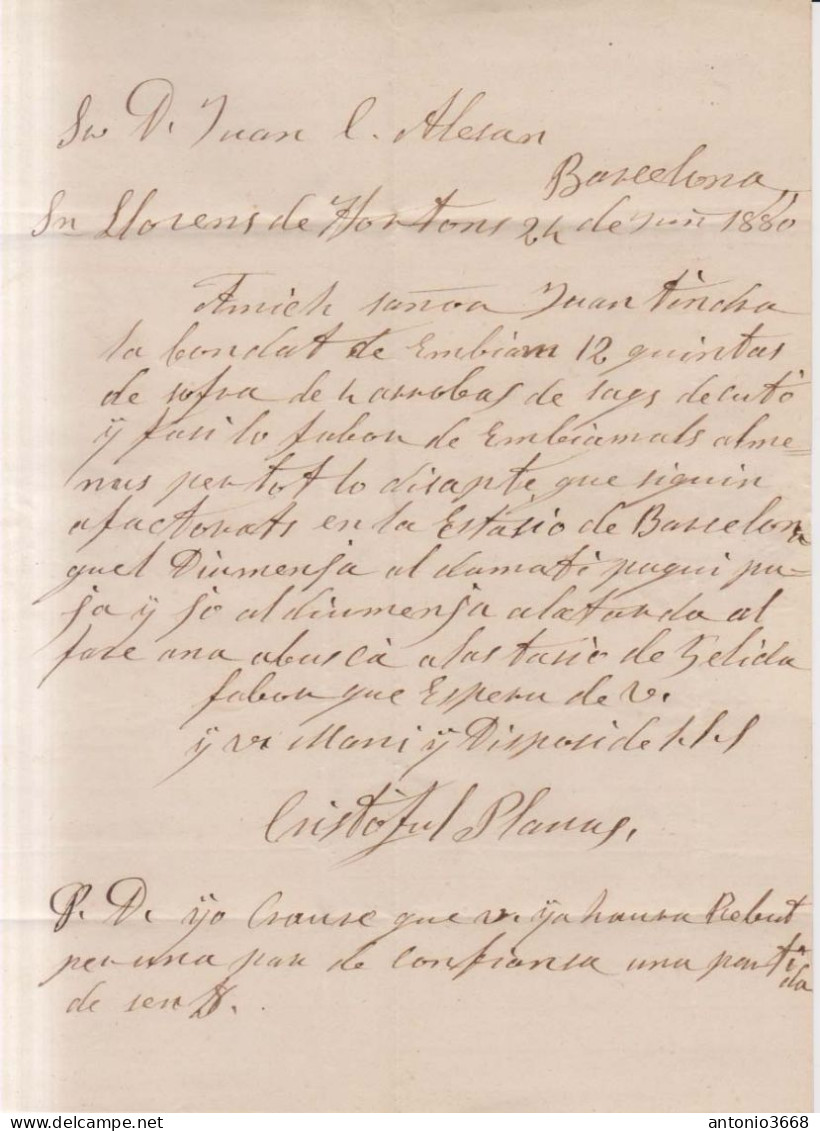 Sr D. Juan C. Alesan
Barcelona
Sn Llorens de Hortons 24 de Juñ 1880
Amich sañoa Juan tindra
la bondat de Embiam 12 quintas
de sofra de 4 arrobas de sags de cutó
y fasi lo fabou de Embiamals alme=
nus per tot lo disapte que siguin
afactorats en la Estasio de Barcelona
quel Diumenja al damati pugui pu-
ja y jo al diumenja a la tarda al
fare ana abuscà a lastasio de Gelida
fabou que Esperu de v.
y v. Mani y Disposi de
Cristòful Planus,
P. D. yo Craure que v. ya haura Rebut
per una par de confiansa una partida
de sen
antonio3668